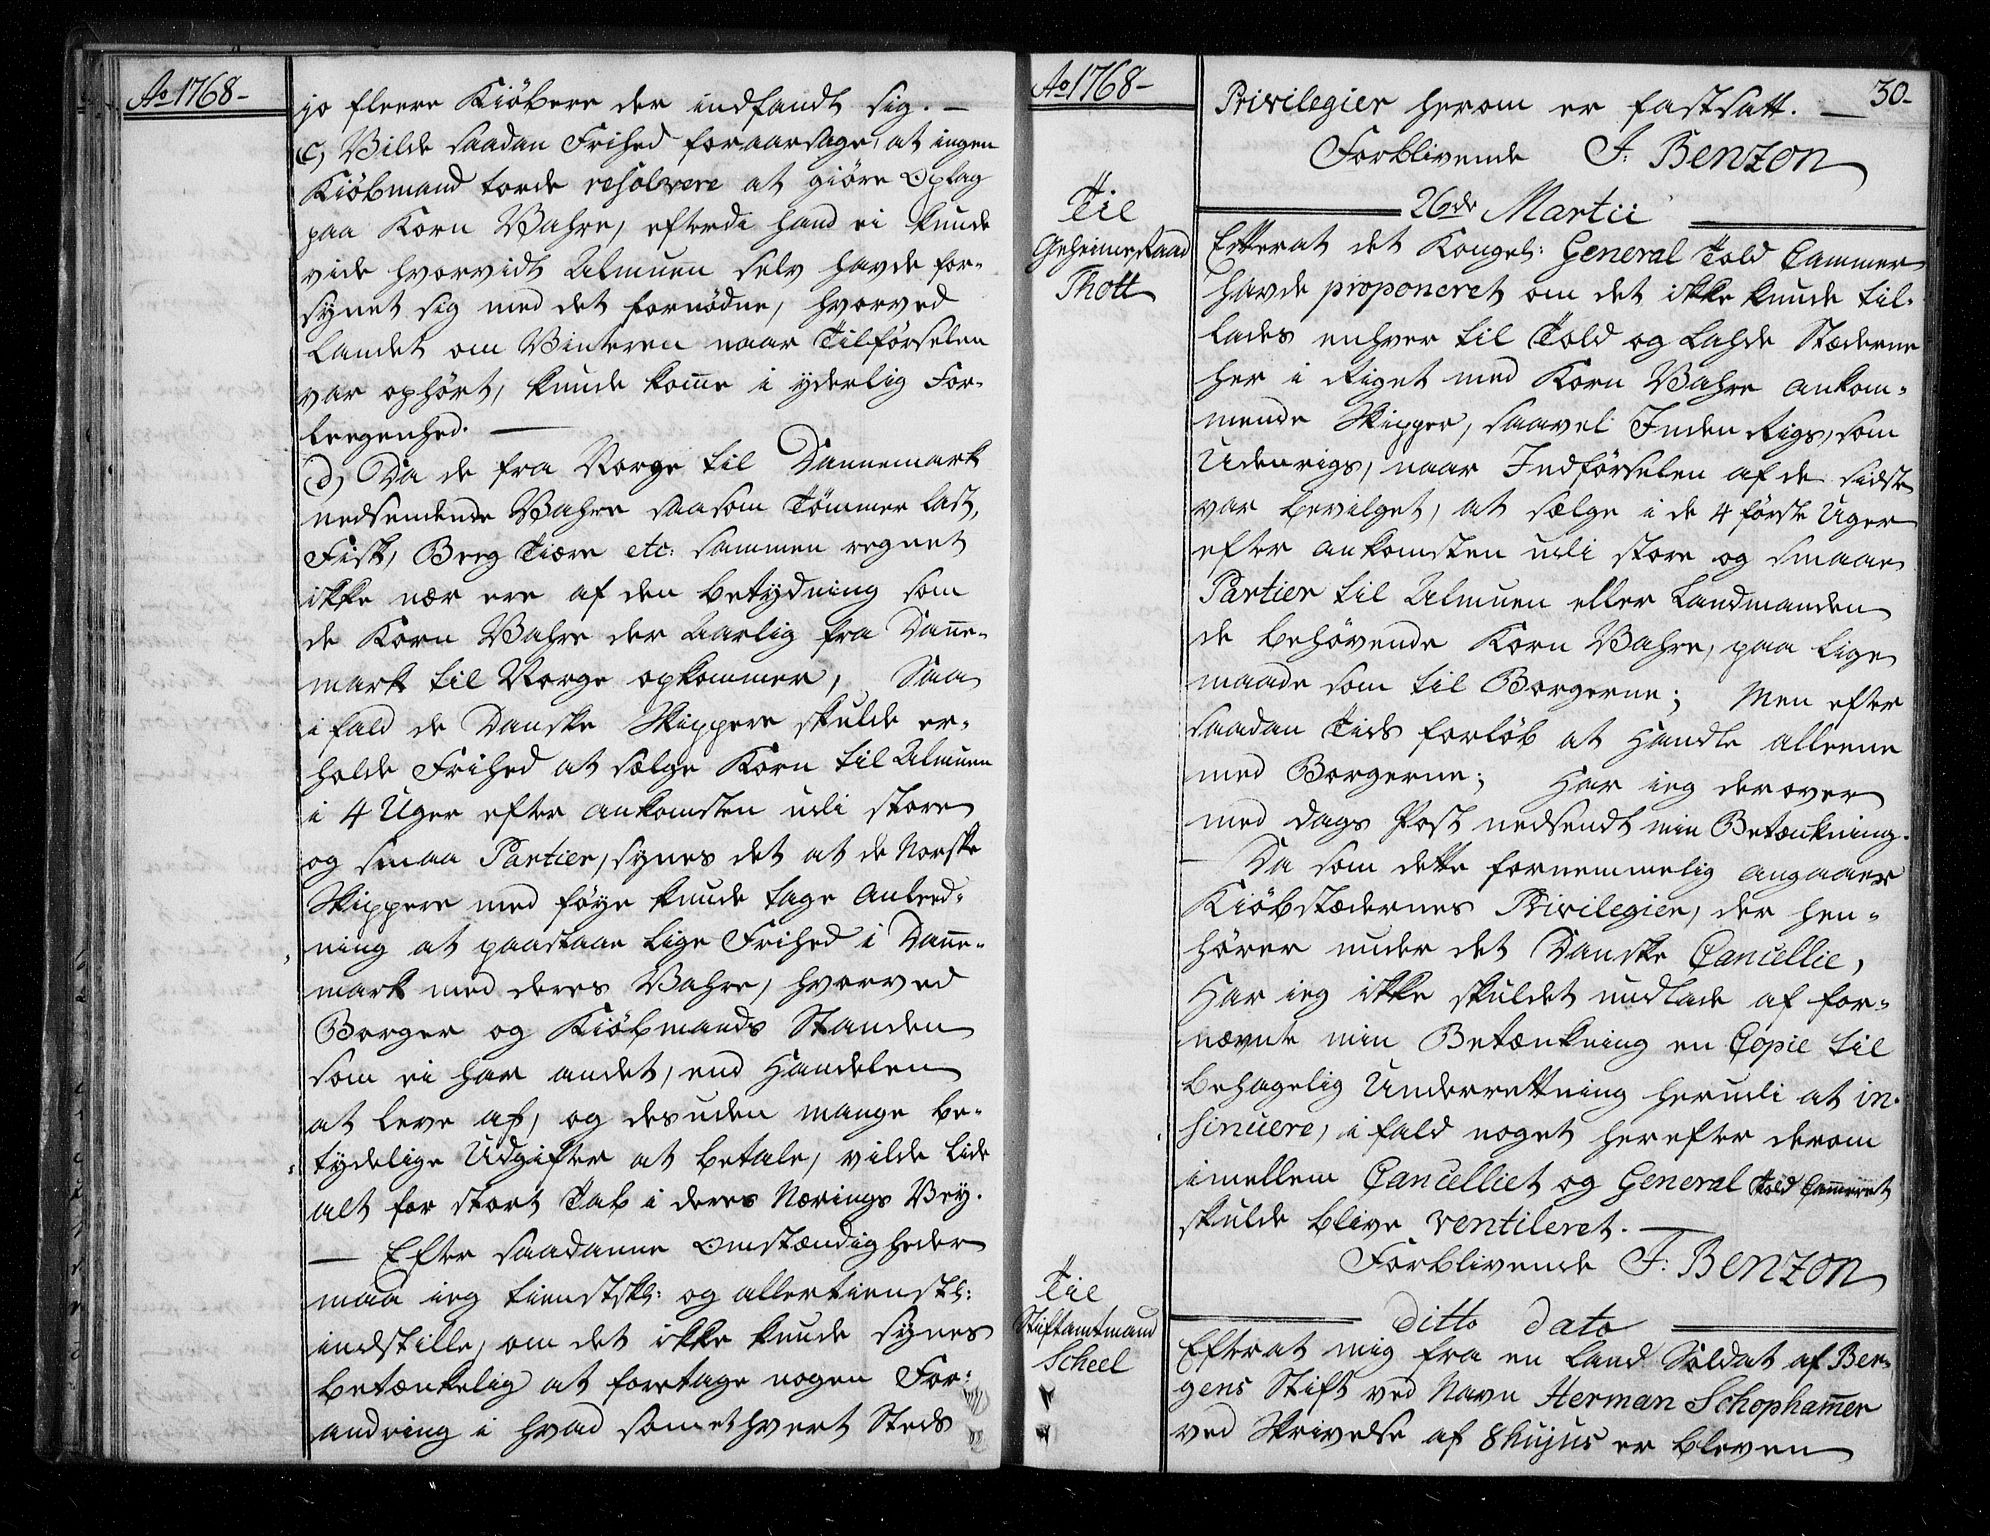 Ao 1768-
jo fleere Kiöbere der indfandt sig. —
c, Vilde saadan Frihed foraarsage, at ingen
Kiöbmand torde resolvere at giöre Oplag
paa Korn Vahre, efterdi hand ei kunde
vide hvorvidt Almuen selv havde for-
synet sig med det fornödne, hvorved
Landet om Vinteren naar Tilförselen
var ophört, kunde kom̄e i yderlig For-
leegenhed. —
d, Da de fra Norge til Dannemark
nedsendende Vahre saasom Tömmer Last,
Fisk, Beeg Tiære etc: sammen regnet
ikke nær ere af den betydning som
de Korn Vahre der Aarlig fra Dan̄e-
mark til Norge opkommer, Saa
ifald de Danske Skippere skulde er-
holde Frihed at sælge Korn til Almuen
i 4 Uger efter ankomsten udi store
og smaa Partier, synes det at de Norske
Skippere med föye kunde tage Anleed-
ning at paastaae lige Frihed i Dan̄e-
mark med deres Vahre, hvorved
Borger og Kiöbmands Standen
som ei har andet, end Handelen
at leve af, og desuden mange be-
tydelige Udgifter at betale, vilde lide
alt for stort Tab i deres Nærings Vey.
— Efter saadanne Omstændigheder
maa ieg tienstskl: og allertienstl:
indstille, om det ikke kunde synes
betænkelig at foretage nogen For-
andring i hvad som et hvert Steds
Ao 1768-
30-
Privilegier herom er fastsatt. —
Forblivende F. Benzon
26de Martii
Til
Geheimeraad
Thott
Efterat det Kongel: General Told Cammer
havde proponeret om det ikke kunde til-
lades enhver til Told og Ladde Stæderne
her i Riget med Korn Vahre ankom-
mende Skipper, saavel Inden Rigs, som
Udenrigs, naar Indförselen af de sidste
var bevilget, at sælge i de 4 förste Uger
efter ankomsten udi store og smaae
Partier til Almuen eller Landmanden
de behövende Korn Vahre, paa lige
maade som til Borgerne; Men efter
saadan Tids forlöb at Handle alleene
med Borgerne; Har ieg derover
med Dags Post nedsendt min Betænkning.
— Da som dette fornemmelig angaaer
Kiöbstædernes Privilegier, der hen-
hörer under det Danske Cancellie,
Har ieg ikke skuldet undlade af for-
nævnte min Betænkning en Copie til
behagelig Underrettning herudi at in-
sinuere, ifald noget herefter derom
imellem Cancelliet og General Told Cam̄eret
skulde blive ventileret. —
Forblivende F. Benzon
ditto dato
Til
Stiftamtmand
Scheel
Efterat mig fra en Land Soldat af Ber-
gens Stift ved Navn Herman Schopham̄er
ved Skrivelse af 8 hujus er bleven